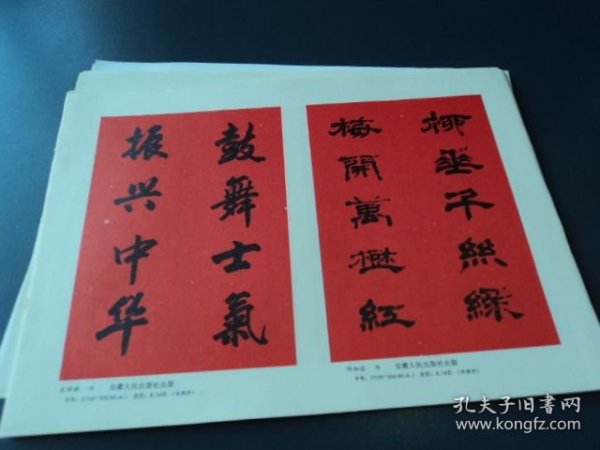 鼓舞士氣
振兴中华
柳垂千絲緑
梅開萬樹紅
书 安徽人民出版社出版
书 安徽人民出版社出版
孔夫子旧书网
www.kongfz.com